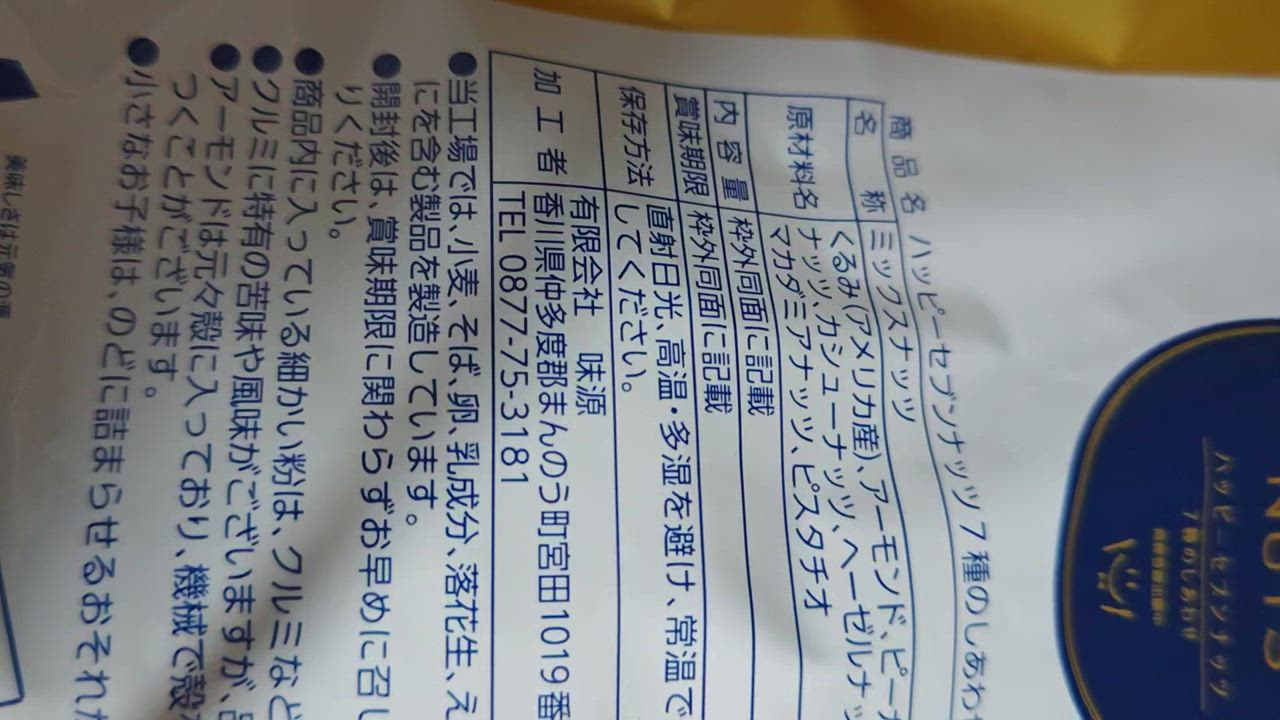 商品名 ハッピーセブンナッツ7種のしあわせ
名称 ミックスナッツ
原材料名 くるみ(アメリカ産)、アーモンド、ピー
ナッツ、カシューナッツ、ヘーゼルナッ
マカダミアナッツ、ピスタチオ
内容量 枠外同面に記載
賞味期限 枠外同面に記載
保存方法 直射日光、高温・多湿を避け、常温で
してください。
加工者 有限会社 味源
香川県仲多度郡まんのう町宮田1019番
TEL 0877-75-3181
●当工場では、小麦、そば、卵、乳成分、落花生、え
にを含む製品を製造しています。
●開封後は、賞味期限に関わらずお早めに召し
りください。
●商品内に入っている細かい粉は、クルミなど
●クルミに特有の苦味や風味がございますが、品
●アーモンドは元々殻に入っており、機械で殻
つくことがございます。
●小さなお子様は、のどに詰まらせるおそれ
NUTS
ハッピーセブンナッツ
7種のしあわせ